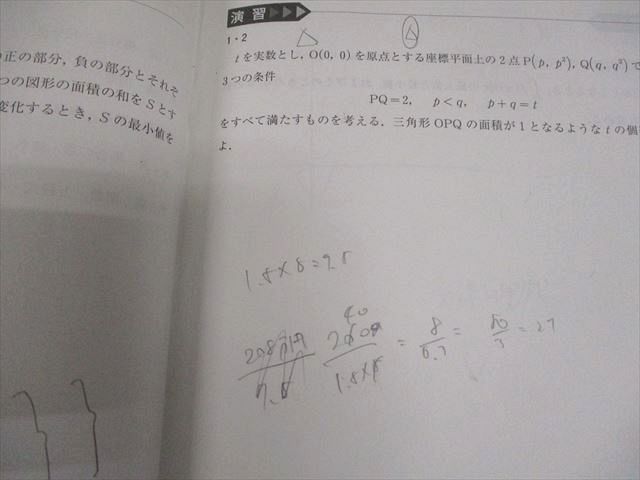 演習
の正の部分，負の部分とそれぞ
つの図形の面積の和をSとす
変化するとき，Sの最小値を
1・2
tを実数とし，O(0, 0)を原点とする座標平面上の2点P(p, p²), Q(q, q²)で
3つの条件
PQ=2, p<q, p+q=t
をすべて満たすものを考える．三角形OPQの面積が1となるようなtの個
よ．
1.8×8=9.8
40
= 8 = 80 = 27
3